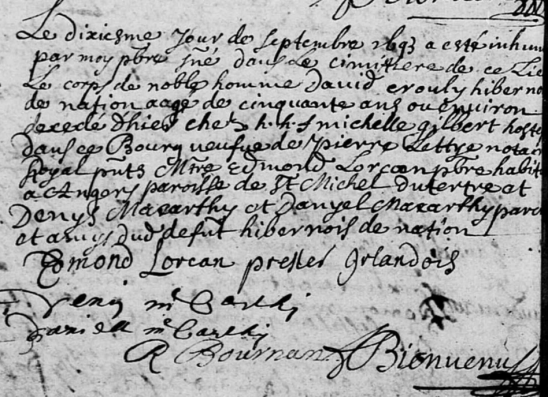 Le dixiesme Jour de Septembre 1693 a esté inhum
par moy pbre sné dans Le cimitiere de ce Lie
Le corps de noble homme david crouly hiberno
de nation aagé de cinquante ans ou environ
decedé dhier chez h.h.f michelle gilbert hoste
dans ce Bourg veufve de pierre Lettre notai
Royal pnts Mre Edmond Lorcan pbre habit
a Angers paroisse de St Michel du tertre et
Denys Macarthy et Danyel Macarthy pare
et amys dud defunt hibernois de nation
Edmond Lorcan prester Irlandois
Deny mc Carthi
Daniell mc Carthi
R Bournan Bienvenu